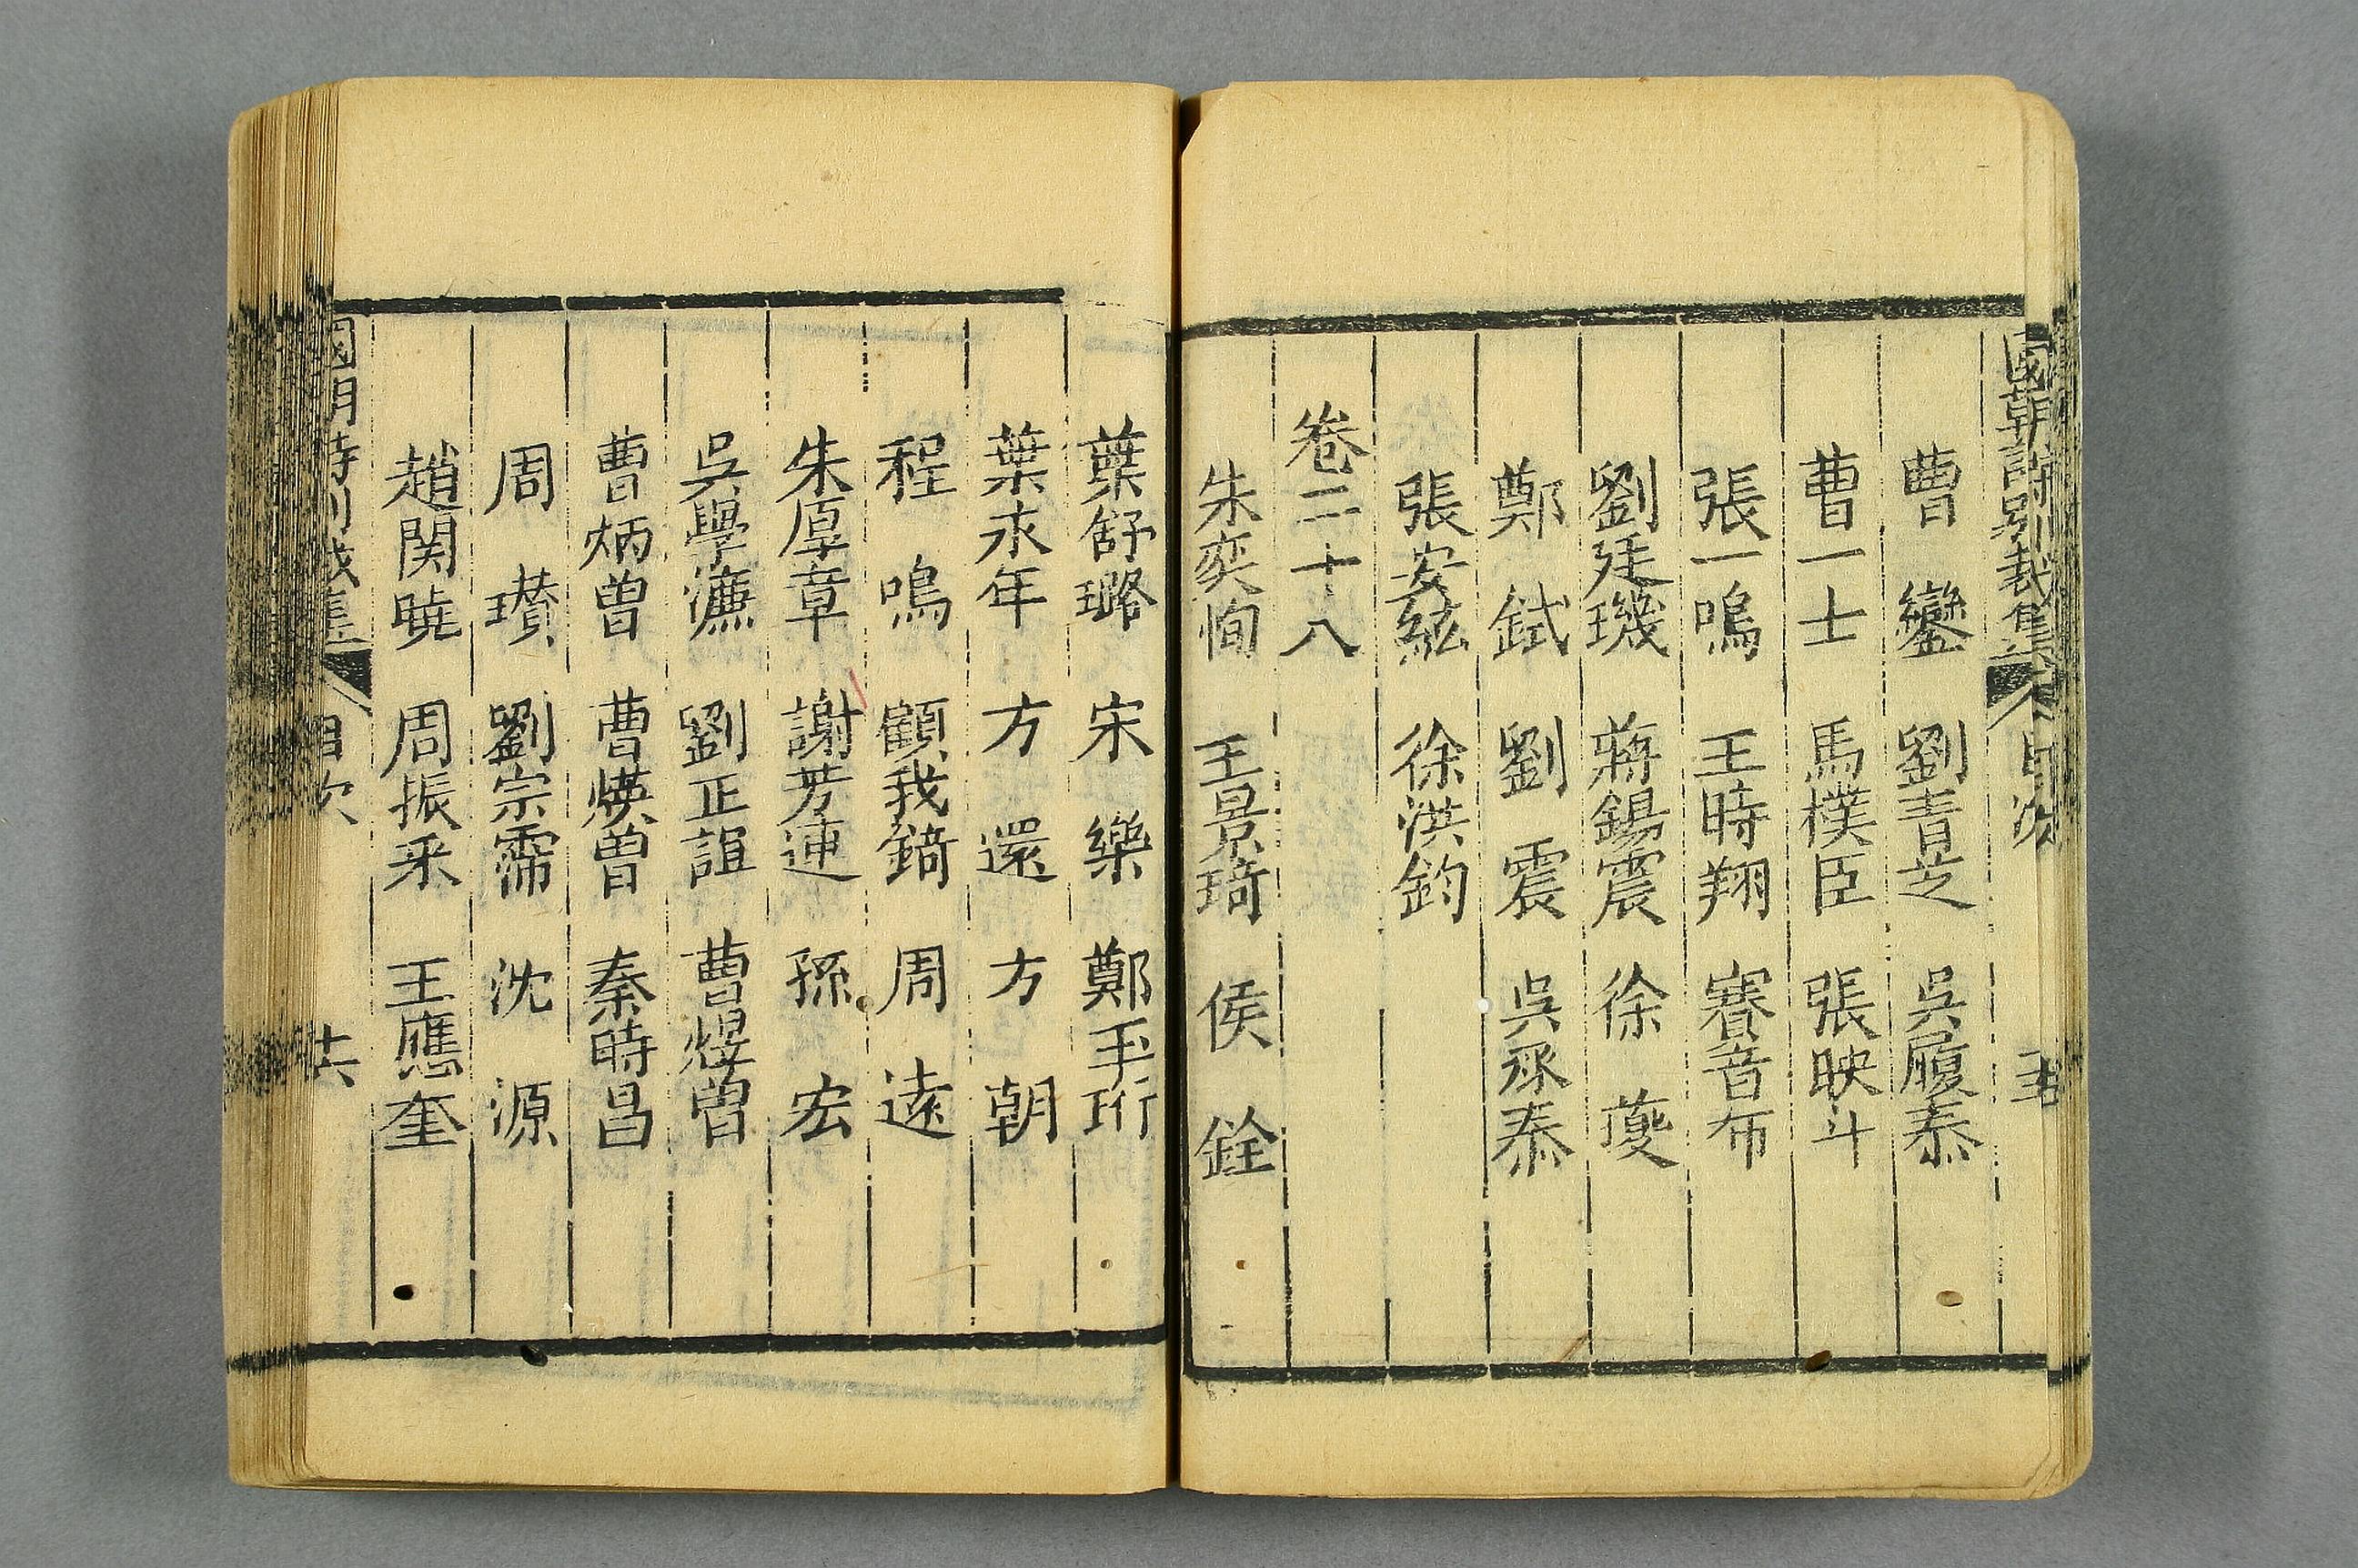 國朝詩別裁集 目次
曹鑾 劉青芝 吳履泰
曹一士 馬樸臣 張映斗
張一鳴 王時翔 賽音布
劉廷璣 蔣錫震 徐夔
鄭鉽 劉震 吳丞泰
張安絃 徐洪鈞
卷二十八
朱奕恂 王景琦 侯銓
葉舒璐 宋樂 鄭玉珩
葉永年 方還 方朝
程鳴 顧我錡 周遠
朱厚章 謝芳連 孫宏
吳學濂 劉正誼 曹煜曾
曹炳曾 曹煐曾 秦時昌
周瓚 劉宗霈 沈源
趙関曉 周振采 王應奎
目次 十六